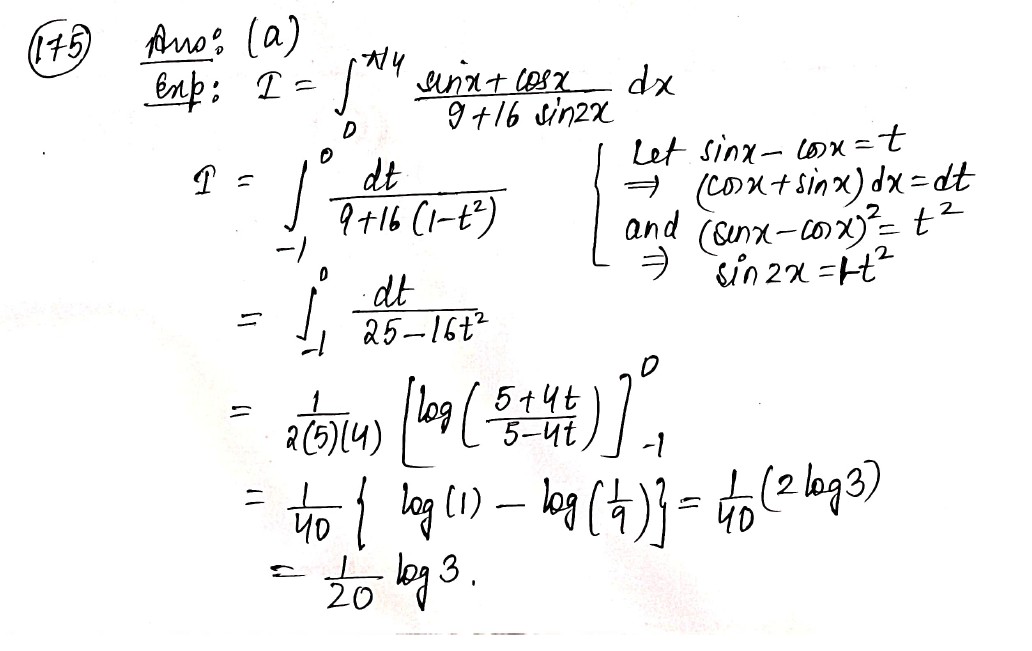 (175) Ans: (a)
Exp: I = ∫₀^(π/4) (sinx + cosx)/(9 + 16 sin2x) dx
Let sinx – cosx = t
I = ∫₋₁^0 dt/(9+16(1–t²))
⇒ (cosx + sinx) dx = dt
and (sinx – cosx)² = t²
⇒ sin2x = 1–t²
= ∫₋₁^0 dt/(25–16t²)
= 1/(2(5)(4)) [log((5+4t)/(5–4t))]₋₁^0
= 1/40 { log(1) – log(1/9)} = 1/40 (2 log3)
= 1/20 log 3.